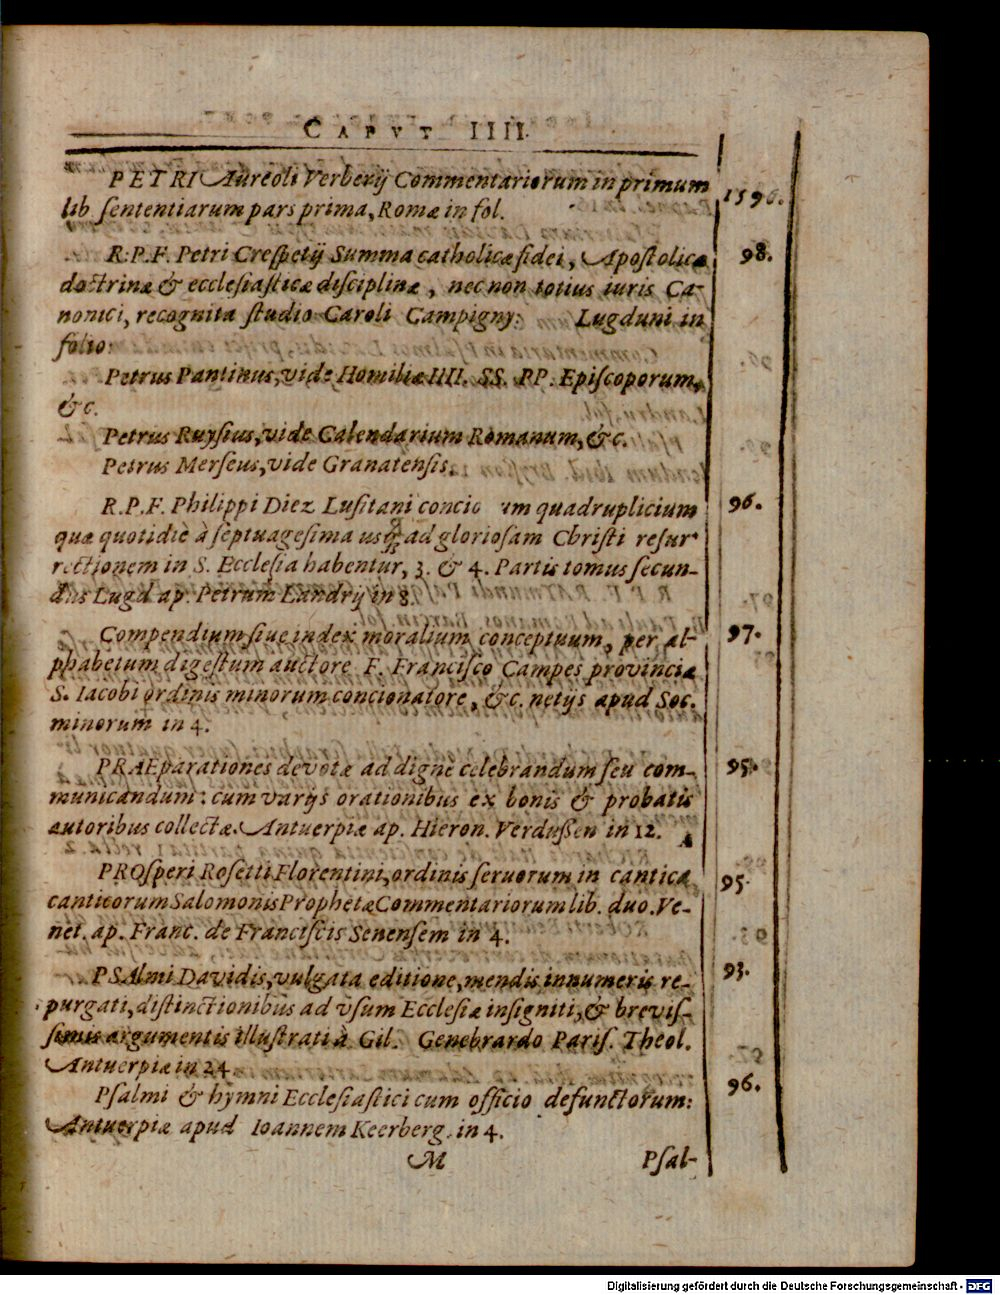 CAPVT IIII.
PETRI Aureoli Verberij Commentariorum in primum 1596.
lib sententiarum pars prima, Romæ in fol.
R.P.F. Petri Crespetij Summa catholicæ fidei, Apostolicæ 98.
doctrinæ & ecclesiasticæ disciplinæ, nec non totius iuris Ca-
nonici, recognita studio Caroli Campigny. Lugduni in
folio.
Petrus Pantinus, vide Homiliæ IIII. SS. PP. Episcoporum,
&c.
Petrus Ruysius, vide Calendarium Romanum, &c.
Petrus Merseus, vide Granatensis.
R.P.F. Philippi Diez Lusitani concio um quadruplicium 96.
quæ quotidiè à septuagesima usq; ad gloriosam Christi resur-
rectionem in S. Ecclesia habentur, 3. & 4. Partis tomus secun-
dus Lugd ap. Petrum Landry in 8.
Compendium siue index moralium conceptuum, per al- 97.
phabetum digestum auctore F. Francisco Campes provinciæ
S. Iacobi ordinis minorum concionatore, &c. netijs apud Soc.
minorum in 4.
PRAEparationes devotæ ad dignè celebrandum seu com- 95.
municandum: cum varijs orationibus ex bonis & probatis
autoribus collectæ. Antuerpiæ ap. Hieron. Verdußen in 12.
PROsperi Rosetti Florentini, ordinis seruorum in cantica 95.
canticorum Salomonis Prophetæ Commentariorum lib. duo. Ve-
net. ap. Franc. de Franciscis Senensem in 4.
PSAlmi Davidis, vulgata editione, mendis innumeris re- 93.
purgati, distinctionibus ad vsum Ecclesiæ insigniti, & brevis-
simis argumentis illustrati à Gil. Genebrardo Paris. Theol.
Antuerpiæ in 24
Psalmi & hymni Ecclesiastici cum officio defunctorum: 96.
Antuerpiæ apud Ioannem Keerberg. in 4.
M Psal-
Digitalisierung gefördert durch die Deutsche Forschungsgemeinschaft - DFG